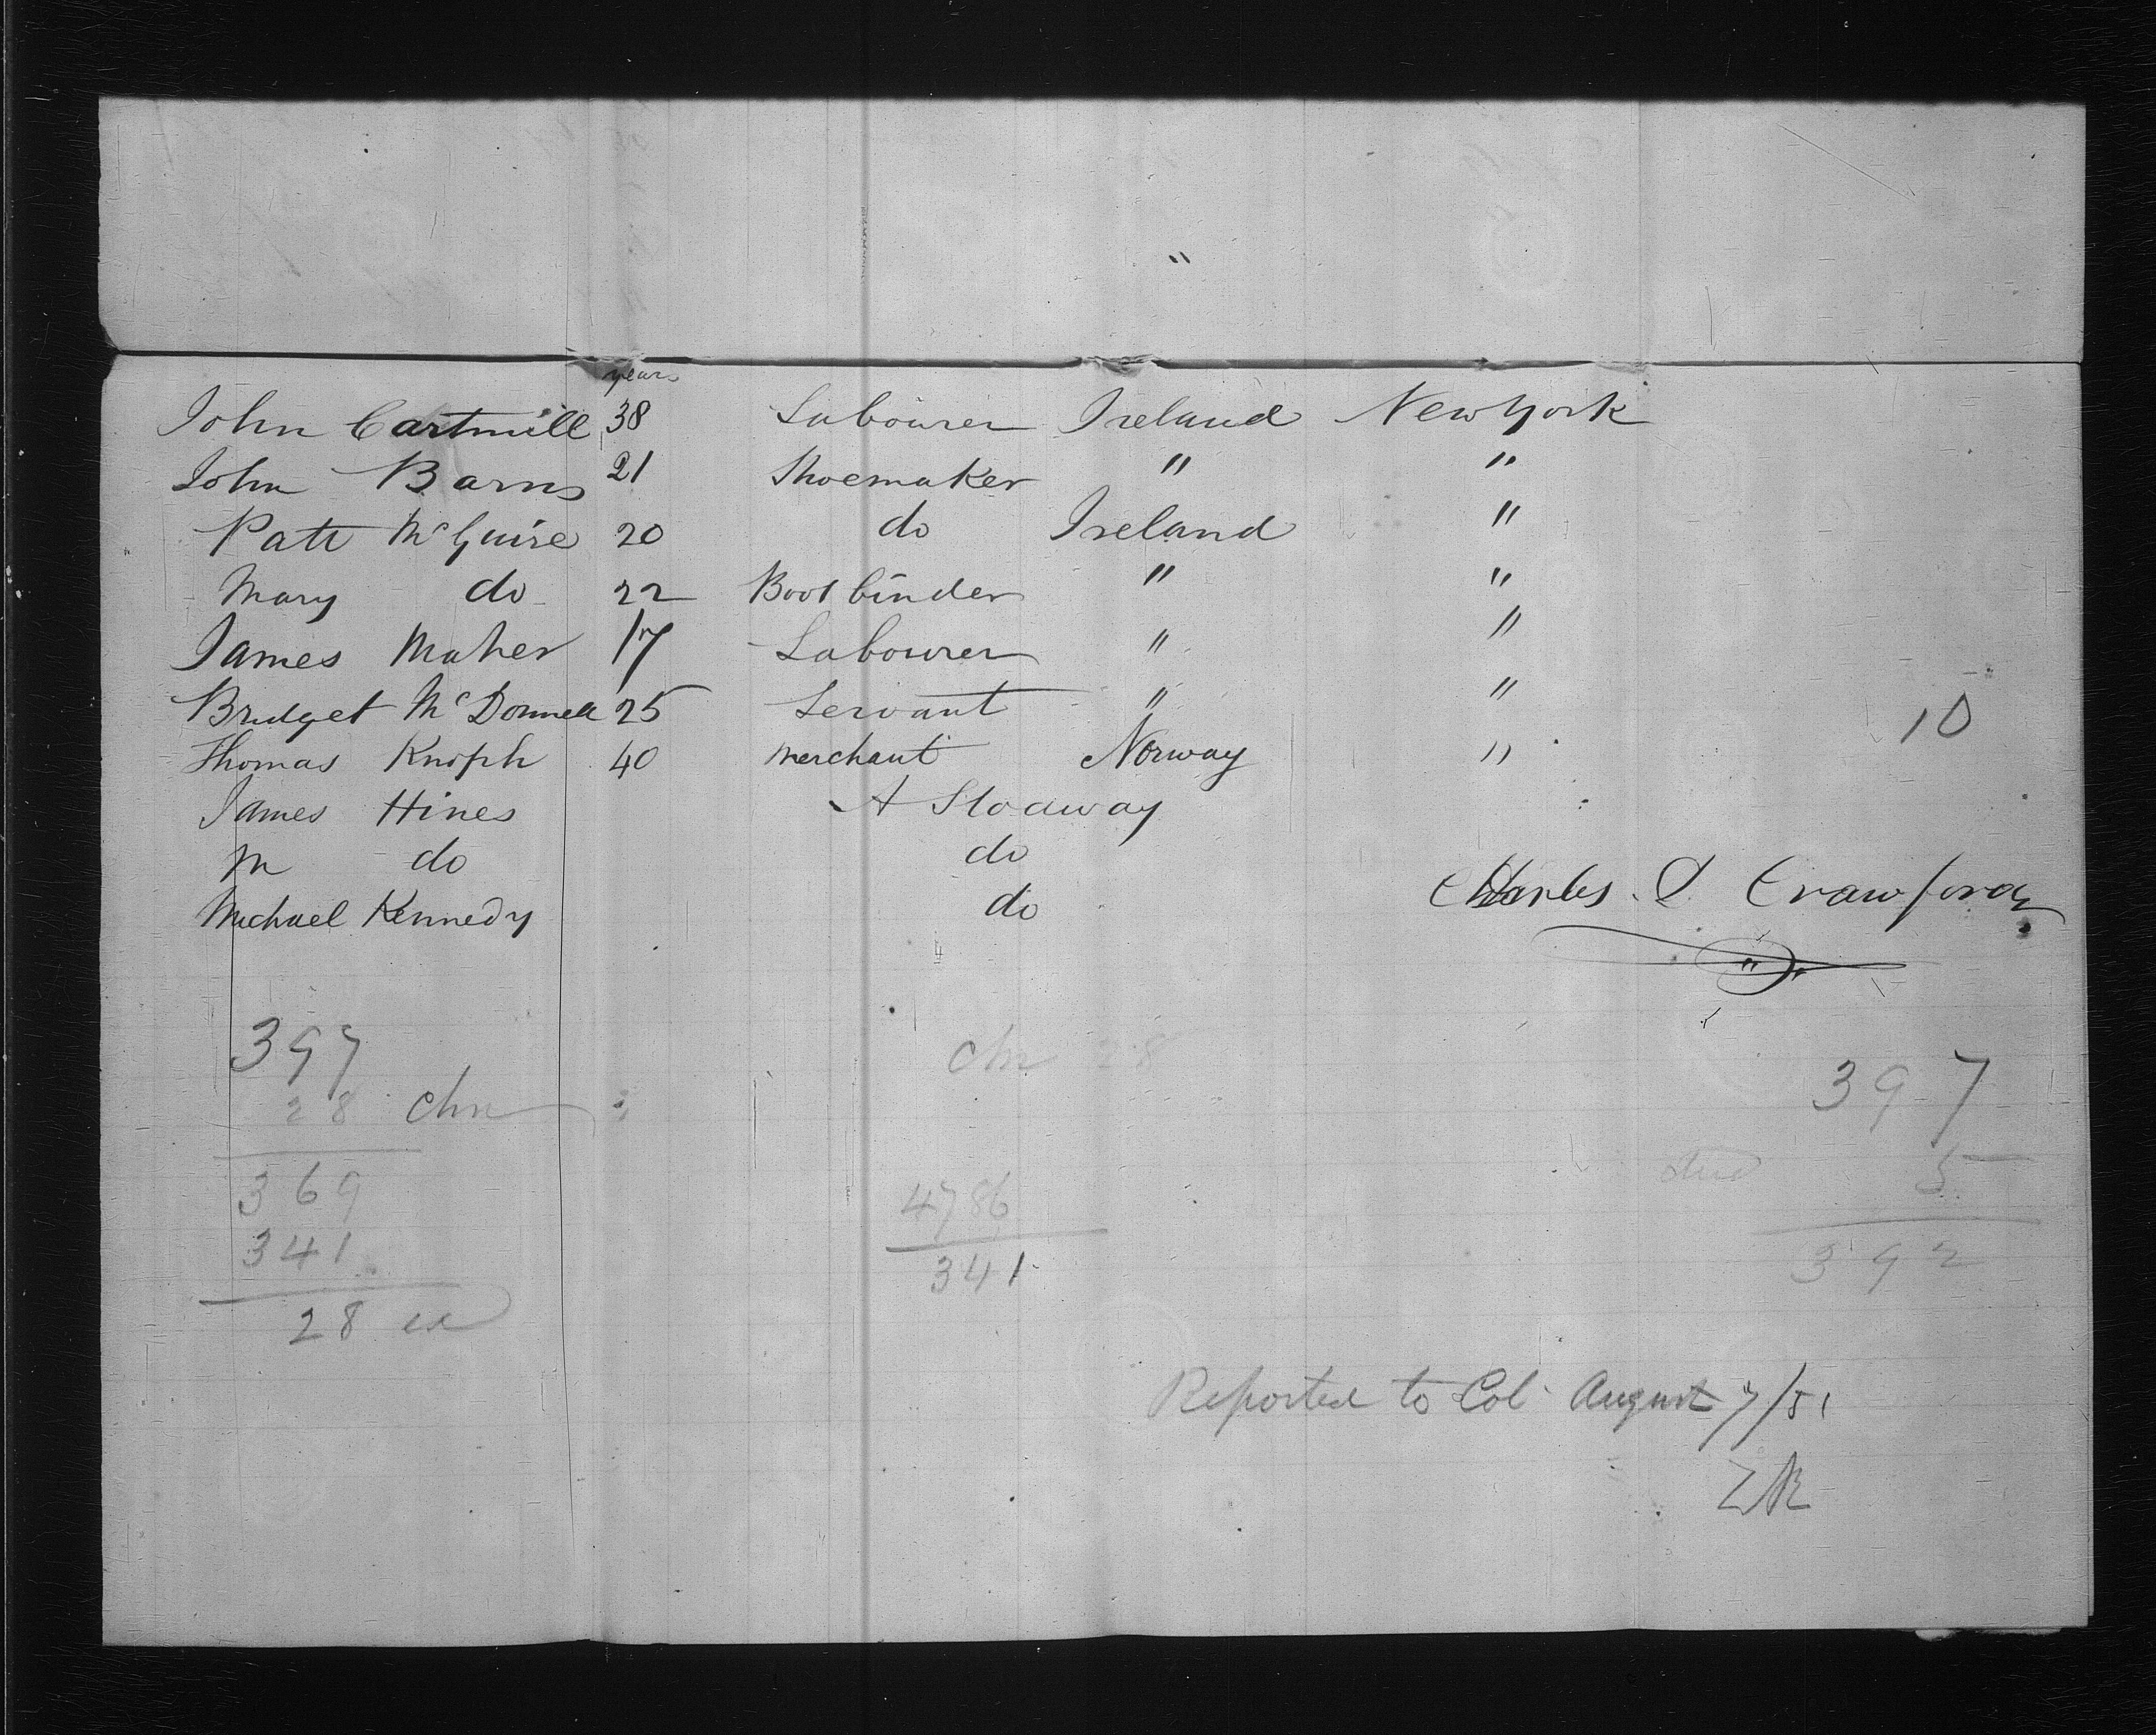 "
years
John Cartmill 38 Labourer Ireland New York
John Barns 21 Shoemaker " "
Patt McGuire 20 do Ireland "
Mary do 22 Boot binder " "
James Maher 17 Labourer " "
Bridget McDonnell 25 Servant " "
10
Thomas Knoph 40 merchant Norway "
James Hines A Stoaway
M do do
Michael Kennedy do
Charles Crawford
397
28 chn
369
341
28 ex
chn 28
4786
341
397
died 5
392
Reported to Col August 7/51